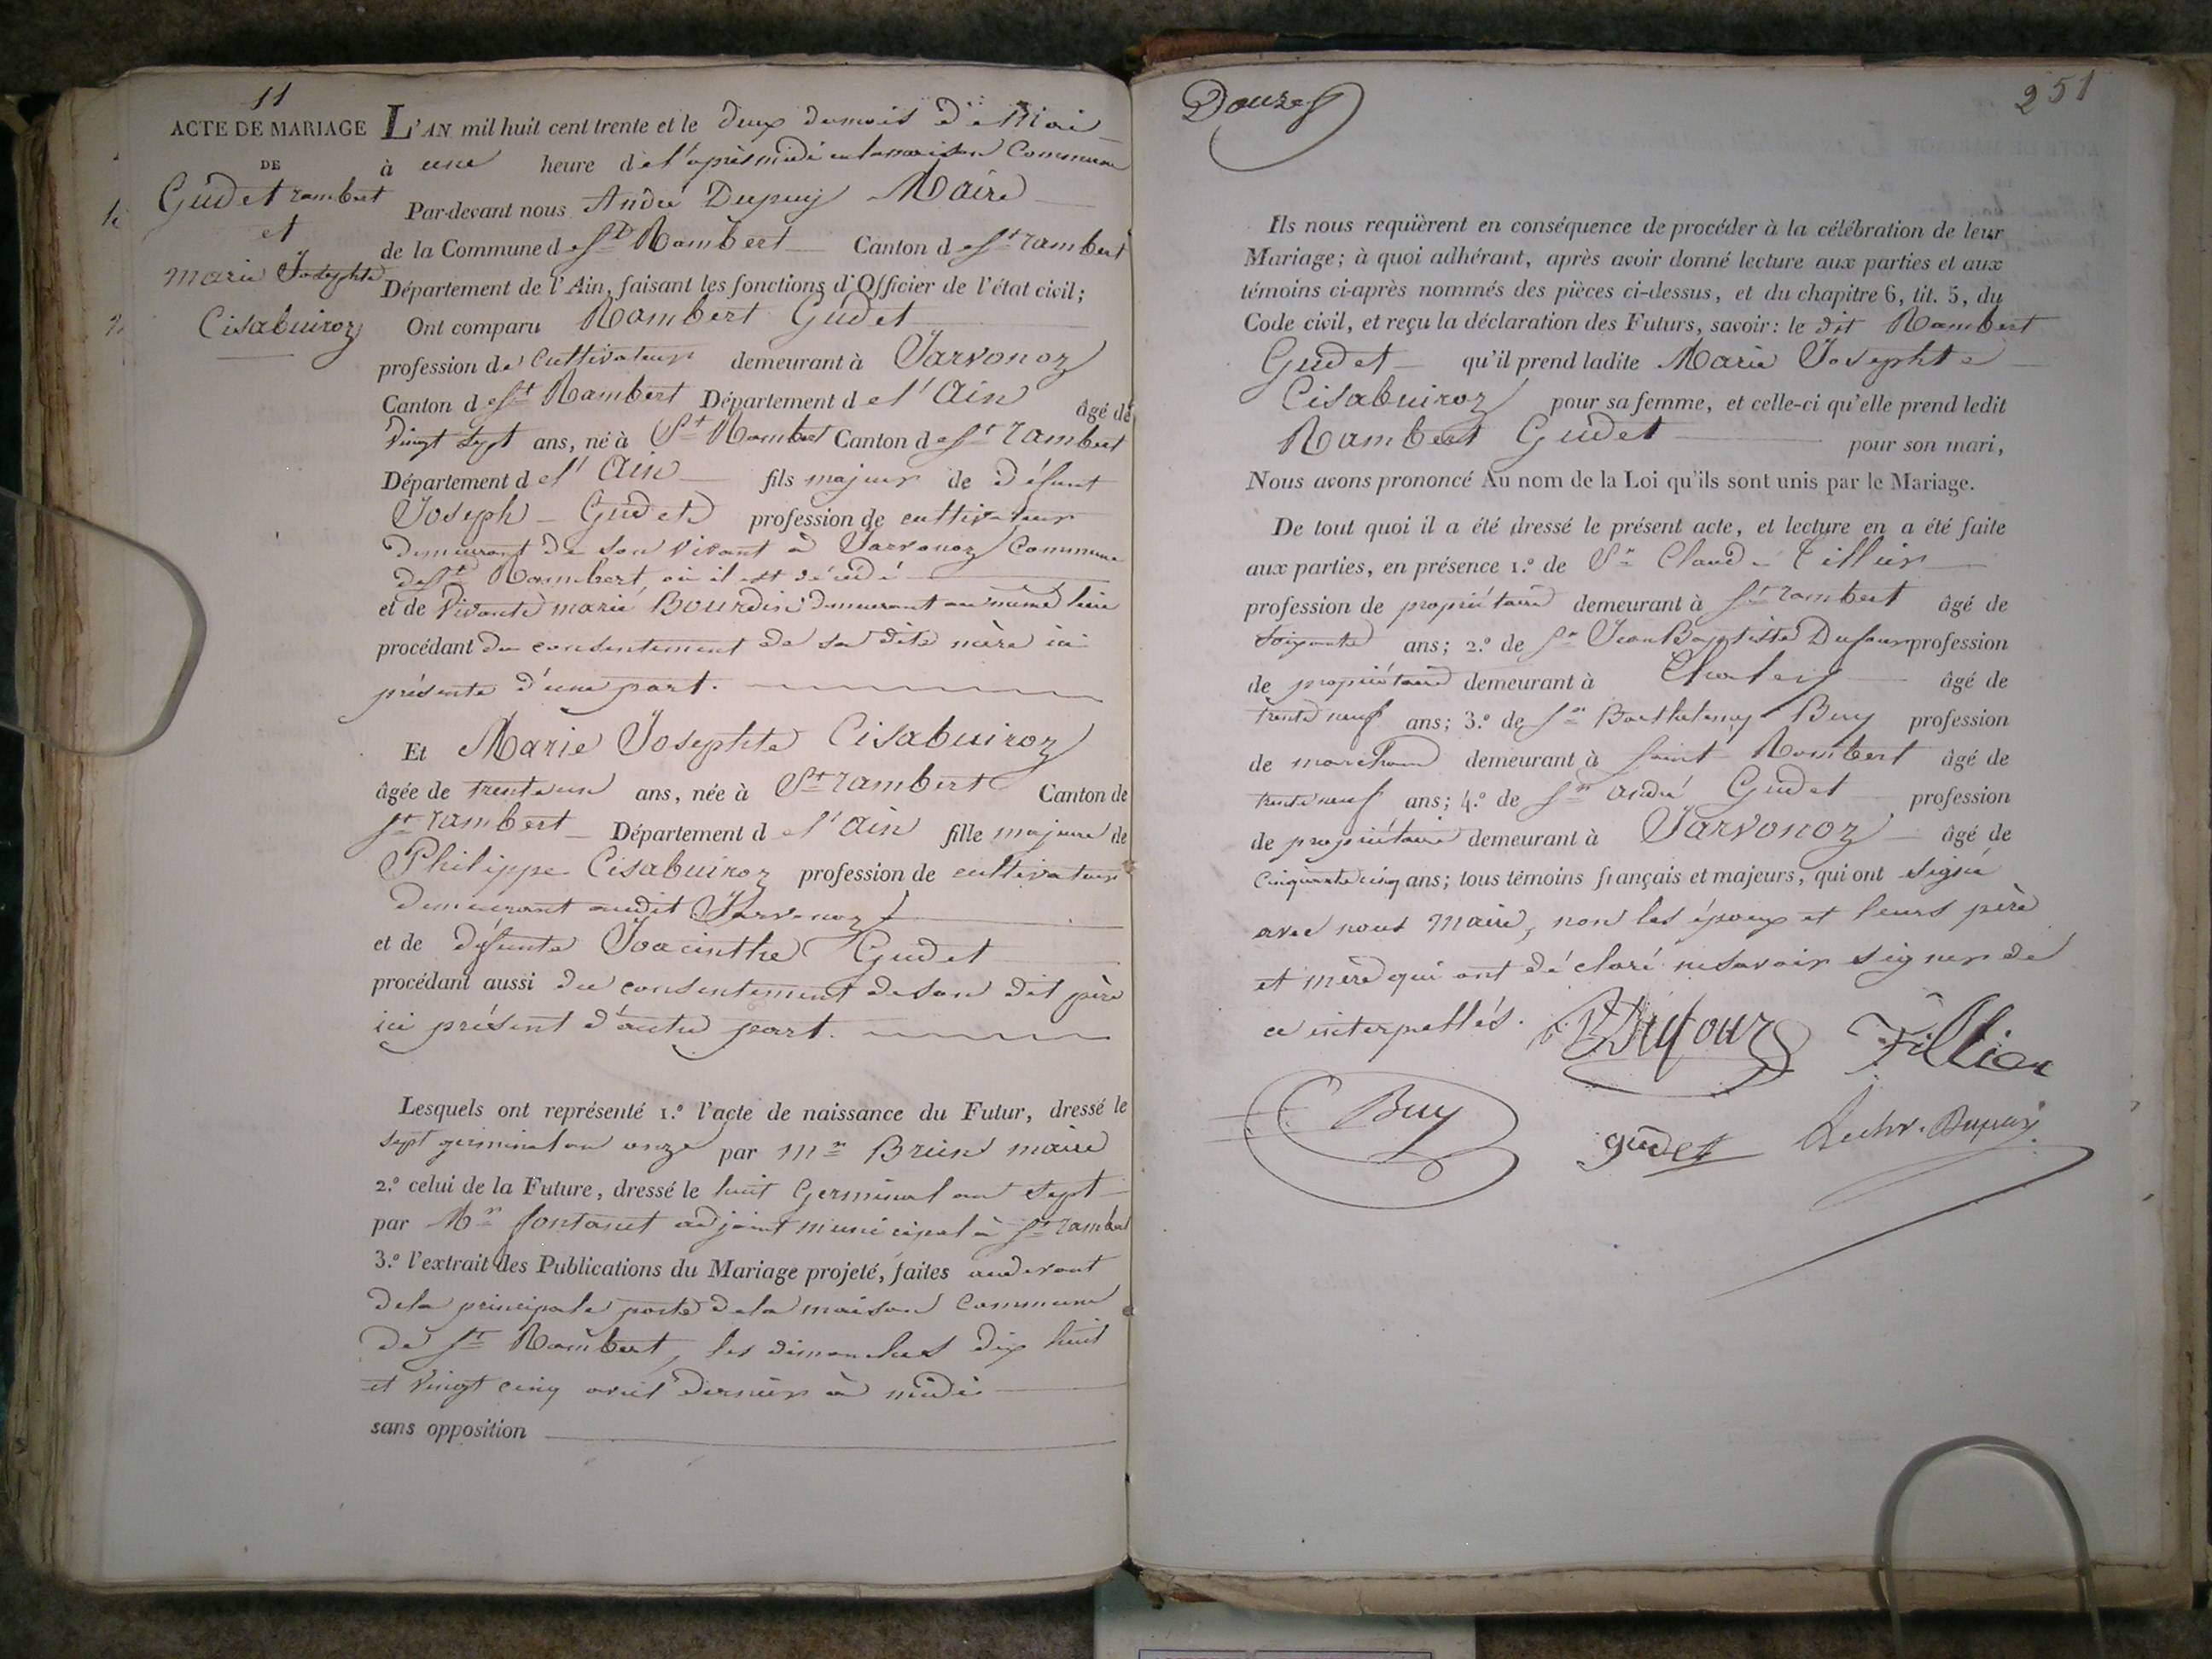 11
ACTE DE MARIAGE
DE
Gudet rambert
et
marie Josephte
Cisabuiroz
L'AN mil huit cent trente et le deux du mois de Mai
à une heure de l'après midi en la maison Commune
Par-devant nous André Dupuy Maire
de la Commune de St Rambert Canton de St rambert
Département de l'Ain, faisant les fonctions d'Officier de l'état civil;
Ont comparu Rambert Gudet
profession de Cultivateur demeurant à Javornoz
Canton de St Rambert Département de l'Ain âgé de
vingt sept ans, né à St Rambert Canton de St rambert
Département de l'Ain fils majeur de défunt
Joseph Gudet profession de cultivateur
demeurant de son vivant à Javornoz Commune
de St Rambert, où il est décédé
et de vivante marie Bourdin demeurant au même lieu
procédant du consentement de sa dite mère ici
présente d'une part.
Et Marie Josephte Cisabuiroz
âgée de trente un ans, née à St rambert Canton de
St rambert Département de l'Ain fille majeure de
Philippe Cisabuiroz profession de cultivateur
demeurant audit
et de défunte Joacinthe Gudet
procédant aussi du consentement de son dit père
ici présent d'autre part.
Lesquels ont représenté 1.º l'acte de naissance du Futur, dressé le
sept germinal an onze par Mr Brun maire
2.º celui de la Future, dressé le huit Germinal an sept
par Mr fontanet adjoint municipal à St rambert
3.º l'extrait des Publications du Mariage projeté, faites au devant
de la principale porte de la maison Commune
de St Rambert, les dimanches dix huit
et vingt cinq avril dernier à midi
sans opposition
Douze
251
Ils nous requièrent en conséquence de procéder à la célébration de leur
Mariage; à quoi adhérant, après avoir donné lecture aux parties et aux
témoins ci-après nommés des pièces ci-dessus, et du chapitre 6, tit. 5, du
Code civil, et reçu la déclaration des Futurs, savoir: le dit Rambert
Gudet qu'il prend ladite Marie Josephte
Cisabuiroz pour sa femme, et celle-ci qu'elle prend ledit
Rambert Gudet pour son mari,
Nous avons prononcé Au nom de la Loi qu'ils sont unis par le Mariage.
De tout quoi il a été dressé le présent acte, et lecture en a été faite
aux parties, en présence 1.º de Sr Claude
profession de propriétaire demeurant à St rambert âgé de
soixante ans; 2.º de Sr Jean Baptiste Dufour profession
de propriétaire demeurant à âgé de
trente neuf ans; 3.º de Sr Barthelemy Buy profession
de marchand demeurant à Saint Rambert âgé de
trente neuf ans; 4.º de Sr André Gudet profession
de propriétaire demeurant à Javornoz âgé de
cinquante cinq ans; tous témoins français et majeurs, qui ont signé
avec nous Maire, non les époux et leurs père
et mère qui ont déclaré ne savoir signer de
ce interpellés.
Dufour
Buy
gudet
Dupuy